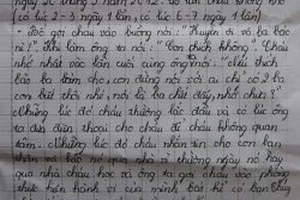 (có lúc 2-3 ngày 1 lần, có lúc 6-7 ngày 1 lần)
gọi cháu vào buồng nói: "Huyền ơi vô ba bảo
làm ông ta nói: "Con thích không" Cháu
nhớ nhất vào lần cuối cùng ông nói: "Nếu thích
bảo ba làm cho, con đừng nói với ai chỉ có 2 ba
con biết thôi nhé, nói là ba chết đấy, nhớ chưa?"
Những lúc đó cháu thường lắc đầu và có lúc ông
ta đưa điện thoại cho cháu đi cháu không quan
tâm. Những lúc đó cháu nhắn tin cho con bạn
và bảo nó qua nhà thường ngày nó hay
qua nhà cháu học và ông ta gọi cháu vào phòng
thực hiện hành vi của mình có bạn Thúy